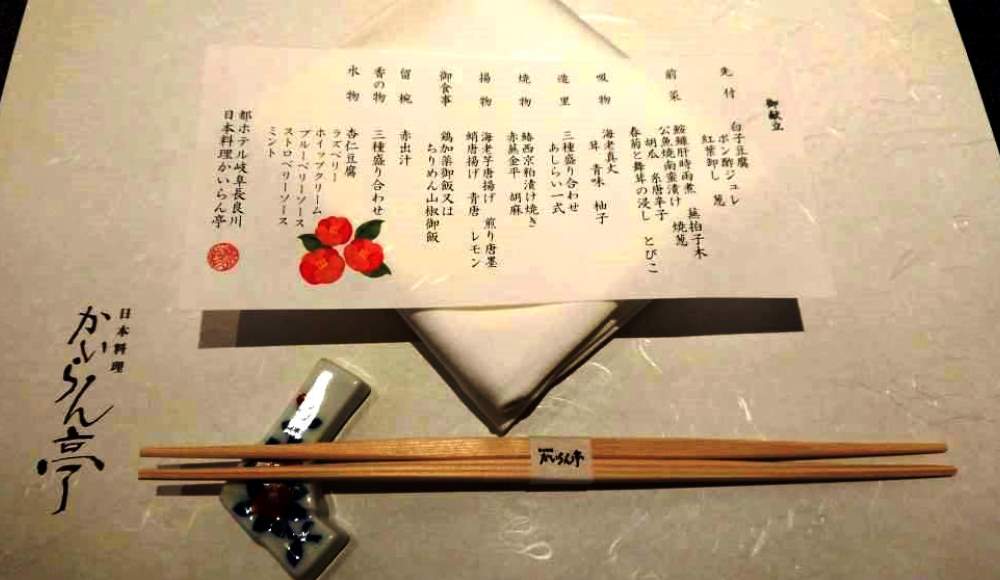 御献立
先付
白子豆腐
ポン酢ジュレ
紅葉卸し 葱
前菜
鮟鱇肝時雨煮 蕪拍子木
公魚焼南蛮漬け 焼葱
胡瓜 糸唐辛子
春菊と舞茸の浸し とびこ
吸物
海老真丈
茸 青味 柚子
造里
三種盛り合わせ
あしらい一式
焼物
鰆西京粕漬け焼き
赤蕪金平 胡麻
揚物
海老芋唐揚げ 煎り唐墨
蛸唐揚げ 青唐 レモン
御食事
鶏加薬御飯又は
ちりめん山椒御飯
留椀
赤出汁
香の物
三種盛り合わせ
水物
杏仁豆腐
ラズベリー
ホイップクリーム
ブルーベリーソース
ストロベリーソース
ミント
都ホテル岐阜長良川
日本料理かいらん亭
日本料理
かいらん亭
かいらん亭